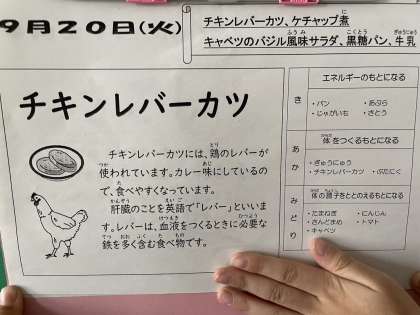 9月20日(火)
チキンレバーカツ、ケチャップ煮
キャベツのバジル風味サラダ、黒糖パン、牛乳
チキンレバーカツ
チキンレバーカツには、鶏のレバーが
使われています。カレー味にしているの
で、食べやすくなっています。
肝臓のことを英語で「レバー」といいま
す。レバーは、血液をつくるときに必要な
鉄を多く含む食べ物です。
エネルギーのもとになる
き
・パン ・あぶら
・じゃがいも ・さとう
体をつくるもとになる
あか
・ぎゅうにゅう
・チキンレバーカツ ・ぶたにく
体の調子をととのえるもとになる
みどり
・たまねぎ ・にんじん
・さんどまめ ・トマト
・キャベツ